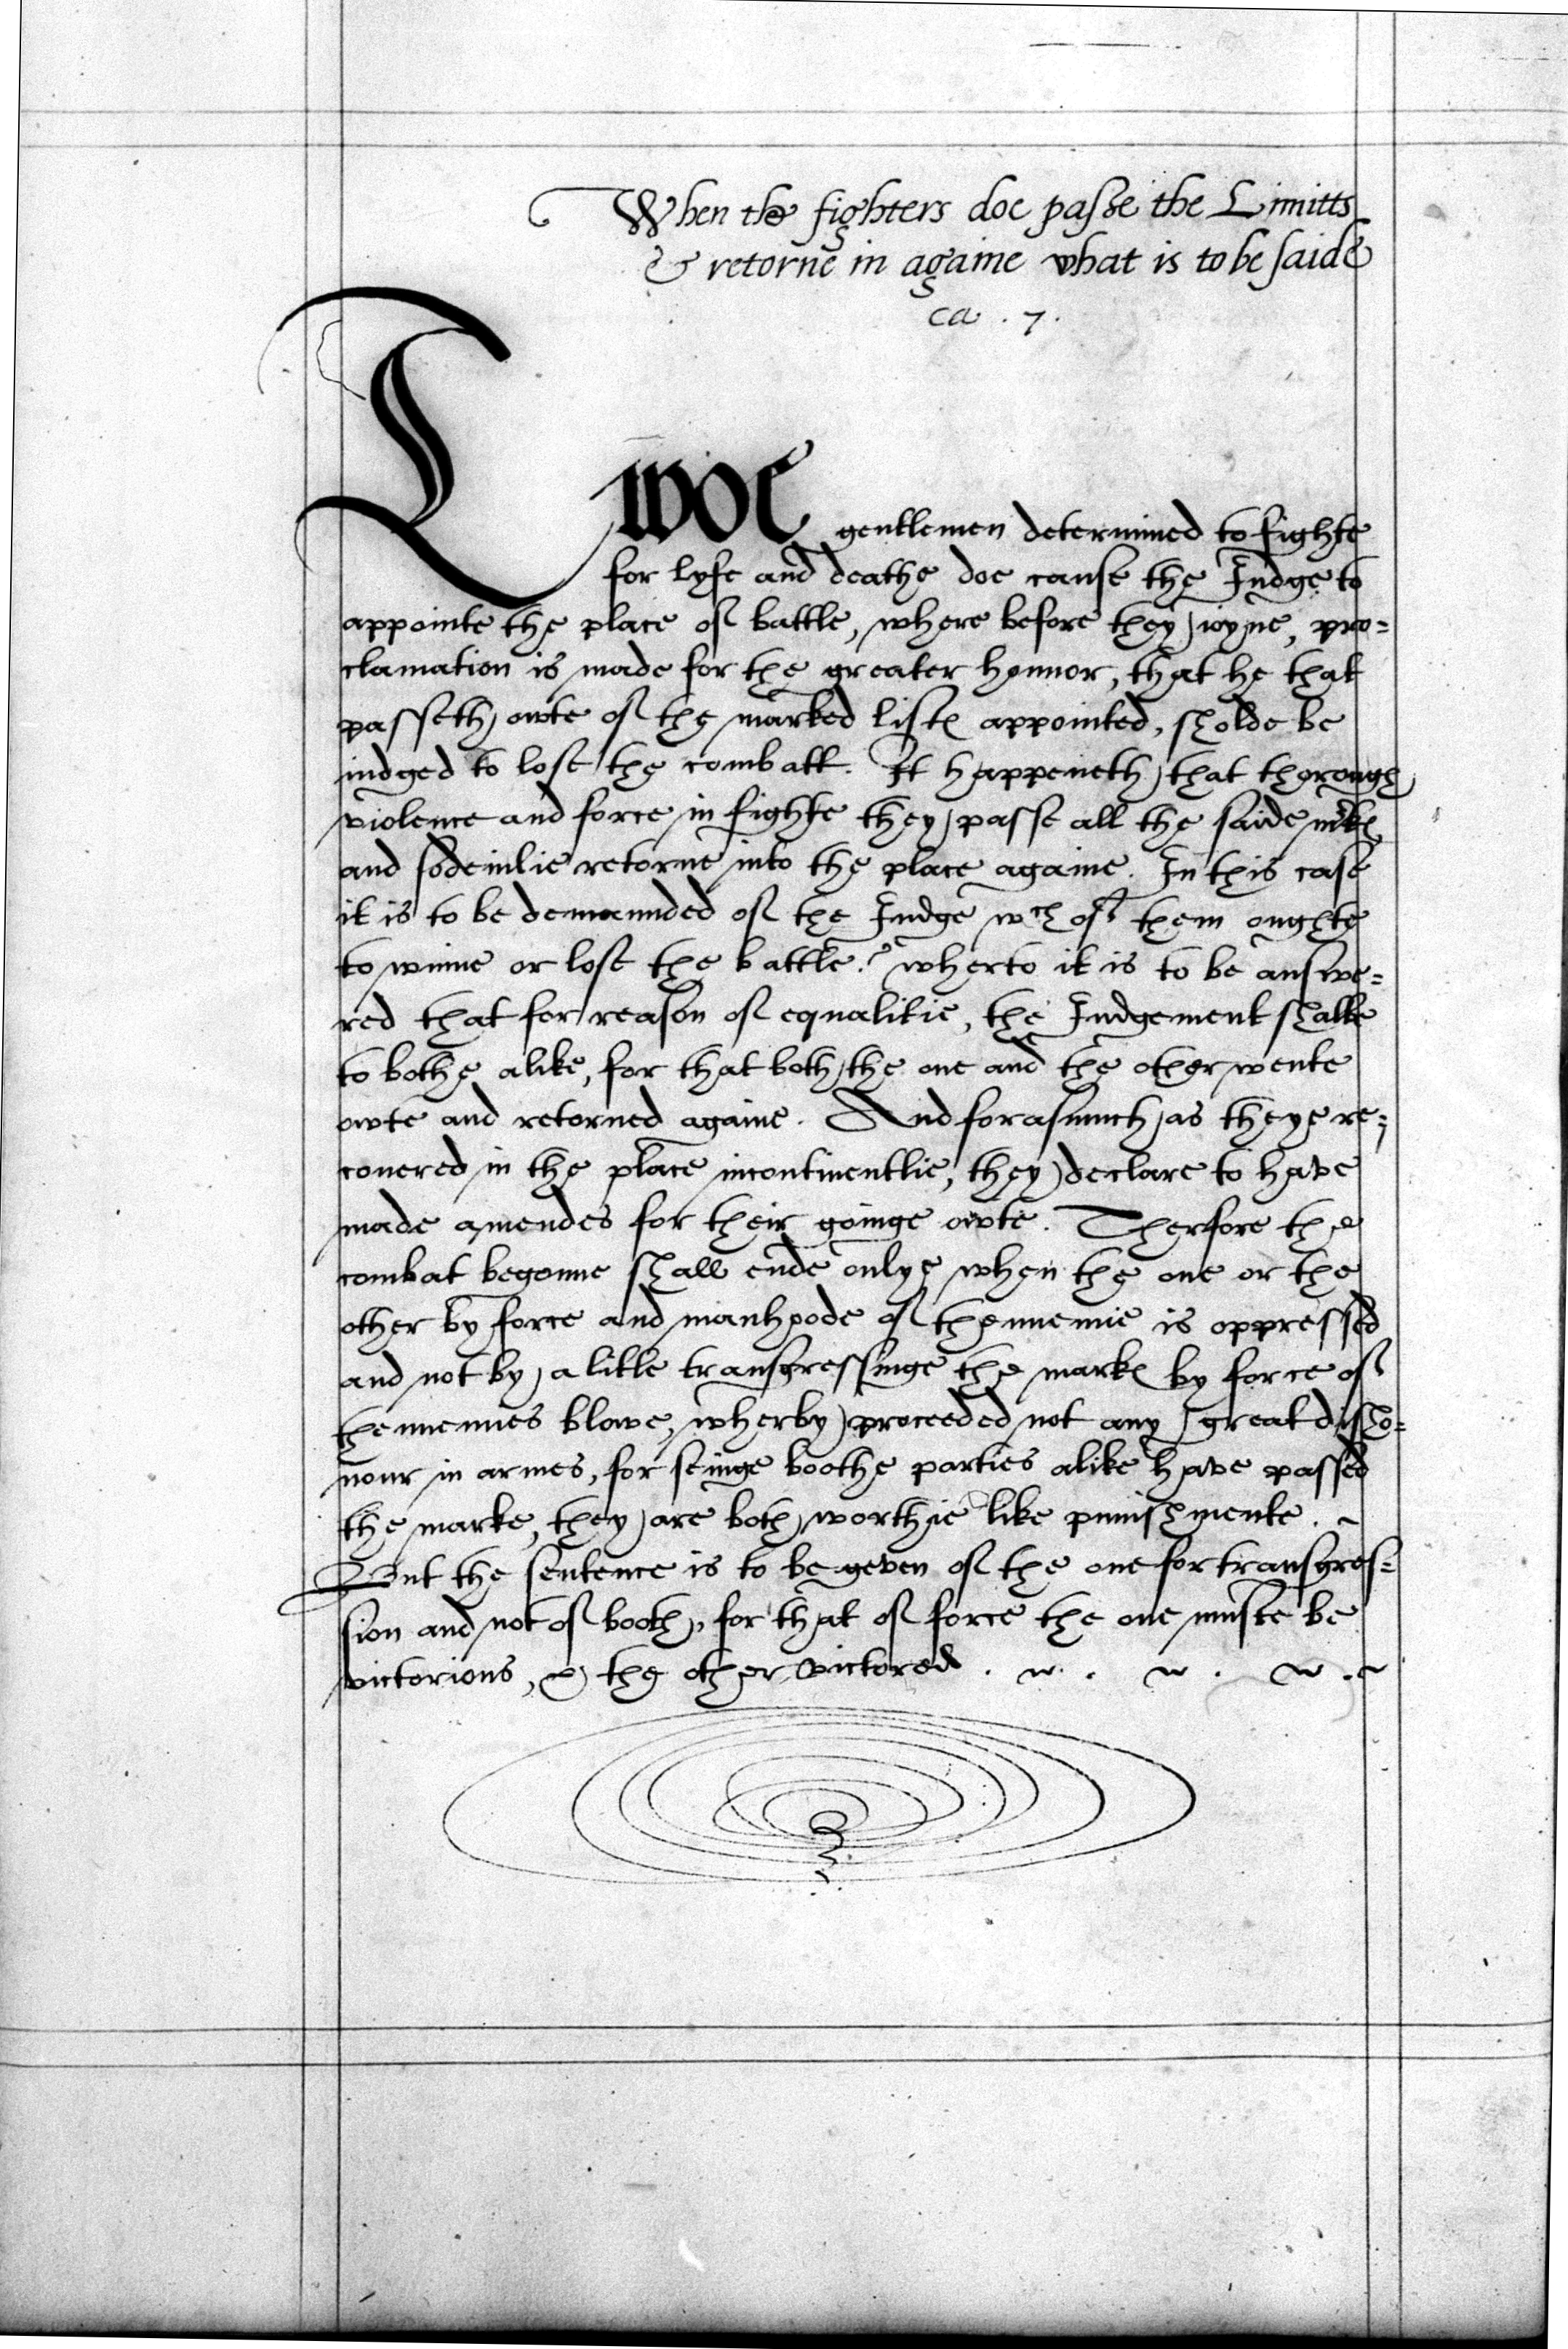 When the fighters doe passe the Limitts
& retorne in againe what is to be saide
ca . 7 .
Twoe gentlemen determined to fighte
for lyfe and deathe doe cause the Iudge to
appointe the place of battle, where before they ioyne, pro=
clamation is made for the greater honnor, that he that
passeth owte of the marked listes appointed, sholde be
iudged to lose the combatt. It happeneth that thorough
violence and force in fighte they passe all the saide mrkes
and sodeinlie retorne into the place againe. In this case
it is to be demaunded of the Iudge wch of them oughte
to winne or lose the battle? wherto it is to be answe=
red that for reason of equalitie, the Iudgement shalbe
to bothe alike, for that both the one and the other wente
owte and retorned againe. And forasmuch as theye re=
couered in the place incontinentlie, they declare to have
made amendes for their goinge owte. Therfore the
combat begonne shall ende onlye when the one or the
other by force and manhoode of thennemie is oppressed
and not by a litle transgressinge the markes by force of
thennemies blowe, wherby proceeded not any great disho=
nour in armes, for seinge boothe parties alike have passed
the marke, they are both worthie like punishmente.
But the sentence is to be geven of the one for transgres=
sion and not of booth, for that of force the one muste be
victorious, & the other victored.